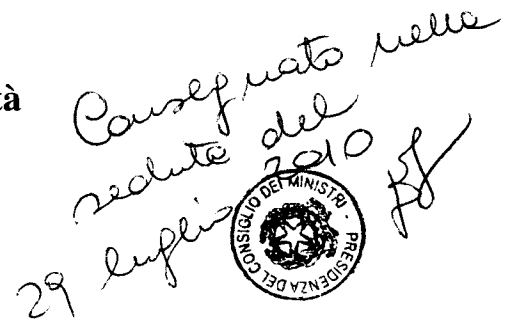 tà
Consegnato nella
seduta del
29 luglio 2010
PRESIDENZA DEL CONSIGLIO DEI MINISTRI -